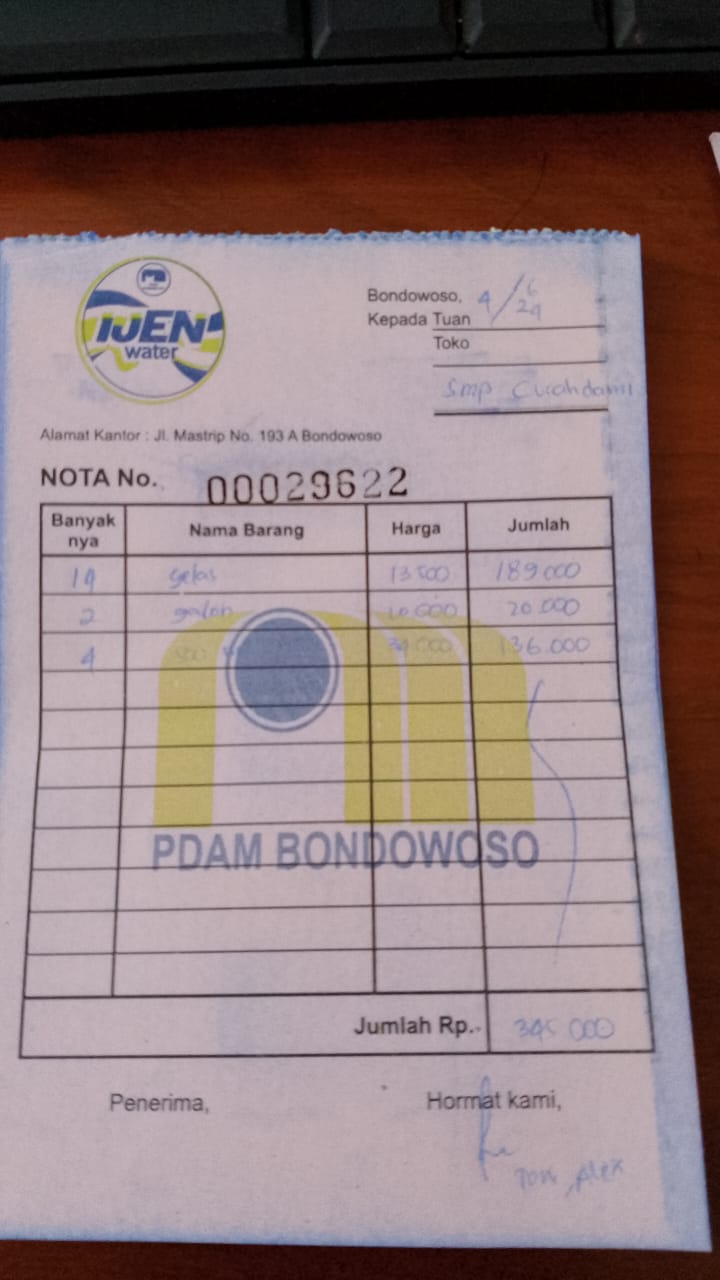 IJEN
water
Bondowoso, 4/6/24
Kepada Tuan
Toko
Smp Curahdami
Alamat Kantor : Jl. Mastrip No. 193 A Bondowoso
NOTA No. 00029622
Banyak nya Nama Barang Harga Jumlah
14 gelas 13.500 189.000
2 galon 10.000 20.000
4 34.000 136.000
PDAM BONDOWOSO
Jumlah Rp. 345.000
Penerima, Hormat kami,